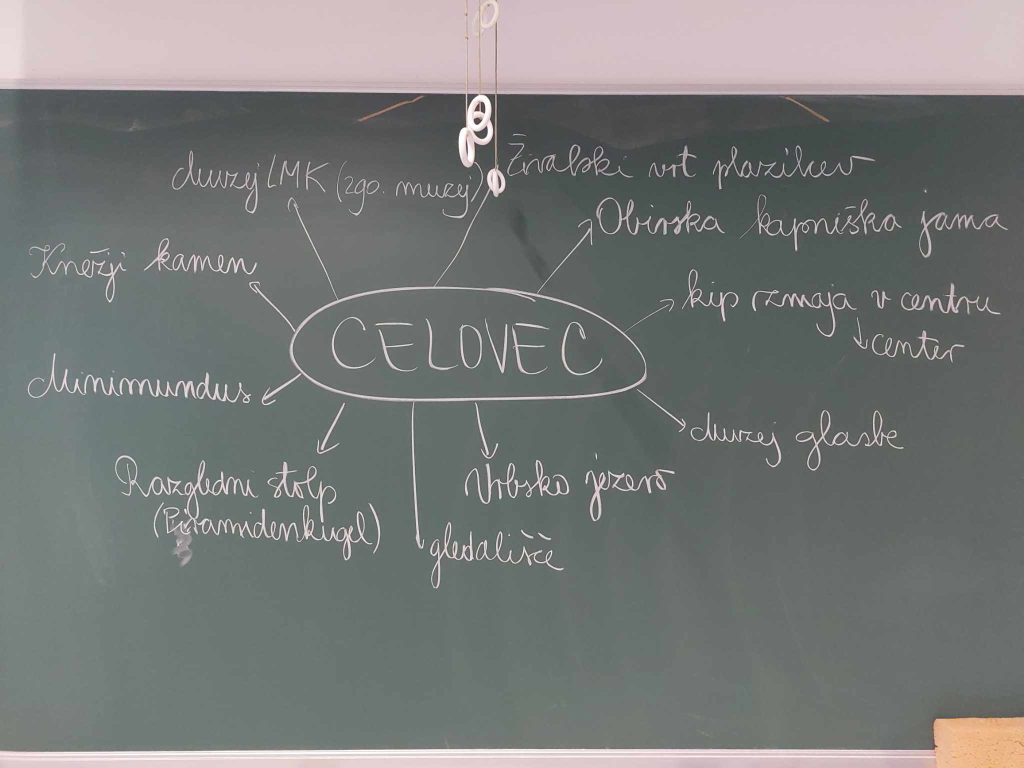 muzej LMK (zgo. muzej)
Živalski vrt plazilcev
Obirska kapniška jama
Knežji kamen
kip zmaja v centru
center
CELOVEC
Minimundus
muzej glasbe
Razgledni stolp
(Piramidenkugel)
Vrbsko jezero
gledališče